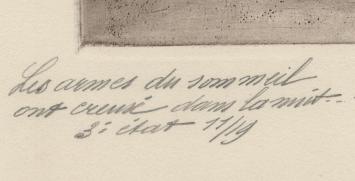 Les armes du sommeil
ont creusé dans la nuit...
3e état 11/19